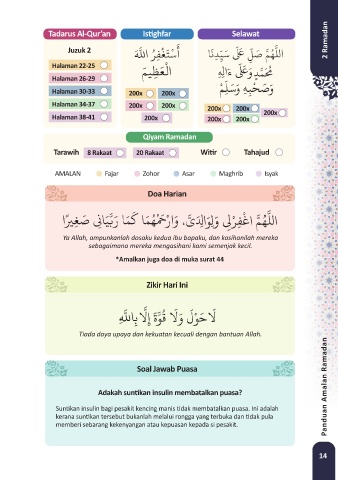 2 Ramadan
Tadarus Al-Qur'an
Juzuk 2
Halaman 22-25
Halaman 26-29
Halaman 30-33
Halaman 34-37
Halaman 38-41
Istighfar
أَسْتَغْفِرُ اللَّهَ
الْعَظِيْمَ
200x 200x
200x 200x
200x
Selawat
اللَّهُمَّ صَلِّ عَلَى سَيِّدِنَا
مُحَمَّدٍ وَعَلَى آلِهِ
وَصَحْبِهِ وَسَلِّمْ
200x 200x
200x
200x 200x
Qiyam Ramadan
Tarawih 8 Rakaat 20 Rakaat Witir Tahajud
AMALAN Fajar Zohor Asar Maghrib Isyak
Doa Harian
اللَّهُمَّ اغْفِرْلِي وَلِوَالِدَيَّ، وَارْحَمْهُمَا كَمَا رَبَّيَانِي صَغِيْرًا
Ya Allah, ampunkanlah dosaku kedua ibu bapaku, dan kasihanilah mereka
sebagaimana mereka mengasihani kami semenjak kecil.
*Amalkan juga doa di muka surat 44
Zikir Hari Ini
لَا حَوْلَ وَلَا قُوَّةَ إِلَّا بِاللَّهِ
Tiada daya upaya dan kekuatan kecuali dengan bantuan Allah.
Soal Jawab Puasa
Adakah suntikan insulin membatalkan puasa?
Suntikan insulin bagi pesakit kencing manis tidak membatalkan puasa. Ini adalah
kerana suntikan tersebut bukanlah melalui rongga yang terbuka dan tidak pula
memberi sebarang kekenyangan atau kepuasan kepada si pesakit.
Panduan Amalan Ramadan
14